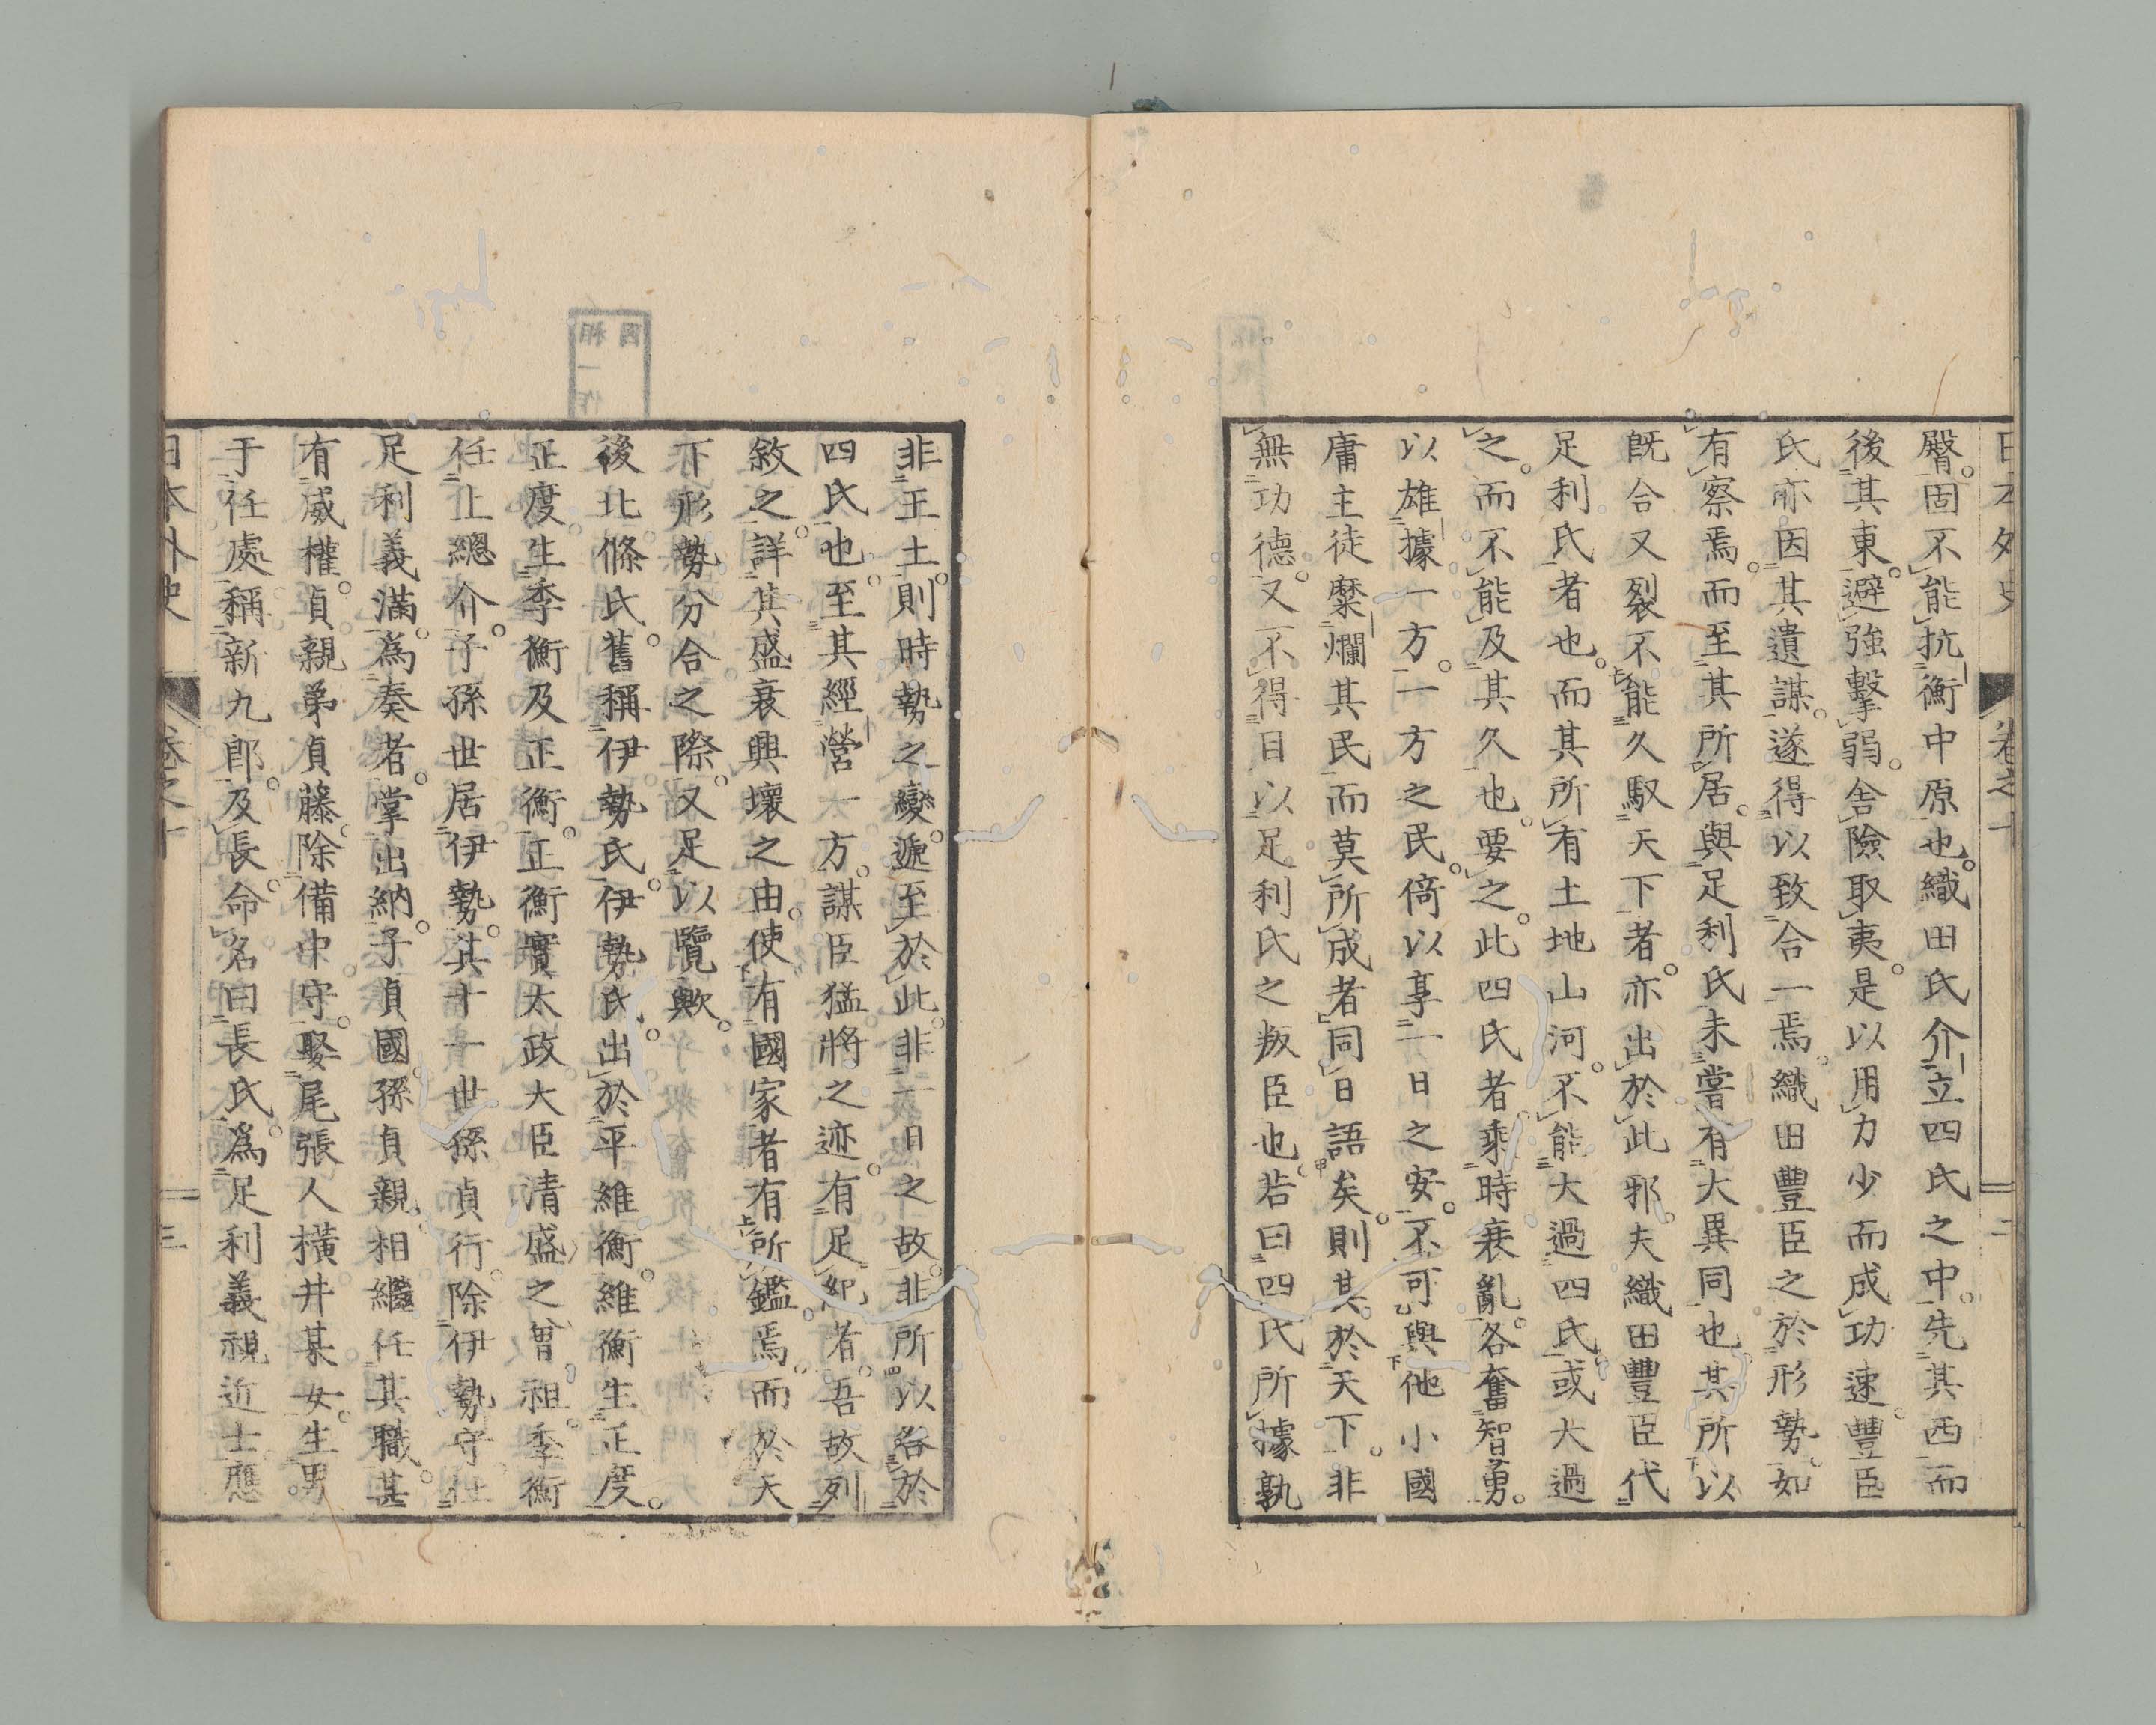 日本外史 卷之十 二
臀。固不能抗衡中原也。織田氏介立四氏之中。先其西而
後其東。避強擊弱。舍險取夷。是以用力少而成功速。豐臣
氏亦因其遺謀。遂得以致合一焉。織田豐臣之於形勢。如
有察焉。而至其所居。與足利氏未嘗有大異同也。其所以
既合又裂不能久馭天下者。亦出於此邪。夫織田豐臣代
足利氏者也。而其所有土地山河。不能大過四氏。或大過
之。而不能及其久也。要之。此四氏者。乘時衰亂。各奮智勇。
以雄據一方。一方之民。倚以享一日之安。不可與他小國
庸主徒糜爛其民而莫所成者同日語矣。則其於天下。非
無功德。又不得目以足利氏之叛臣也。若曰四氏所據孰
非王土。則時勢之變。遞至於此。非一日之故。非所以咎於
四氏也。至其經營一方。謀臣猛將之迹。有足紀者。吾故列
敘之。詳其盛衰興壞之由。使有國家者有所鑑焉。而於天
下形勢分合之際。又足以覽歟。
後北條氏。舊稱伊勢氏。伊勢氏。出於平維衡。維衡生正度。
正度。生季衡及正衡。正衡實太政大臣清盛之曾祖。季衡
任上總介。子孫世居伊勢。其十一世孫貞行。除伊勢守。仕
足利義滿。為奏者。掌出納。子貞國。孫貞親。相繼任其職。甚
有威權。貞親弟貞藤。除備中守。娶尾張人橫井某女。生男
于任處。稱新九郎。及長。命名曰長氏。為足利義視近士。應
日本外史 卷之十 三
因
相一作